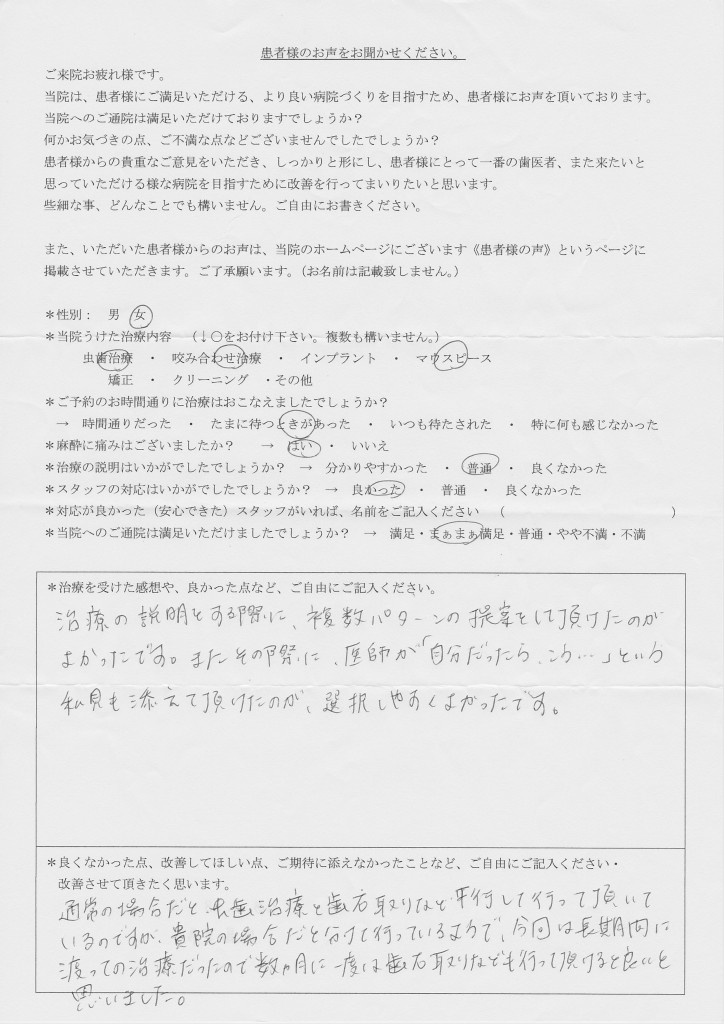 患者様のお声をお聞かせください。
ご来院お疲れ様です。
当院は、患者様にご満足いただける、より良い病院づくりを目指すため、患者様にお声を頂いております。
当院へのご通院は満足いただけておりますでしょうか？
何かお気づきの点、ご不満な点などございませんでしたでしょうか？
患者様からの貴重なご意見をいただき、しっかりと形にし、患者様にとって一番の歯医者、また来たいと
思っていただける様な病院を目指すために改善を行ってまいりたいと思います。
些細な事、どんなことでも構いません。ご自由にお書きください。
また、いただいた患者様からのお声は、当院のホームページにございます《患者様の声》というページに
掲載させていただきます。ご了承願います。（お名前は記載致しません。）
＊性別： 男 女
＊当院うけた治療内容 （↓○をお付け下さい。複数も構いません。）
虫歯治療 ・ 咬み合わせ治療 ・ インプラント ・ マウスピース
矯正 ・ クリーニング ・その他
＊ご予約のお時間通りに治療はおこなえましたでしょうか？
→ 時間通りだった ・ たまに待つときがあった ・ いつも待たされた ・ 特に何も感じなかった
＊麻酔に痛みはございましたか？ → はい ・ いいえ
＊治療の説明はいかがでしたでしょうか？ → 分かりやすかった ・ 普通 ・ 良くなかった
＊スタッフの対応はいかがでしたでしょうか？ → 良かった ・ 普通 ・ 良くなかった
＊対応が良かった（安心できた）スタッフがいれば、名前をご記入ください （ ）
＊当院へのご通院は満足いただけましたでしょうか？ → 満足・まぁまぁ満足・普通・やや不満・不満
＊治療を受けた感想や、良かった点など、ご自由にご記入ください。
治療の説明をする際に、複数パターンの提案をして頂けたのが
よかったです。またその際に、医師が「自分だったら、こう…」という
私見も添えて頂けたのが、選択しやすくよかったです。
＊良くなかった点、改善してほしい点、ご期待に添えなかったことなど、ご自由にご記入ください・
改善させて頂きたく思います。
通常の場合だと、虫歯治療と歯石取りなど平行して行って頂いて
いるのですが、貴院の場合だと分けて行っているようで、今回は長期間に
渡っての治療だったので数ヵ月に一度は歯石取りなども行って頂けると良いと
思いました。